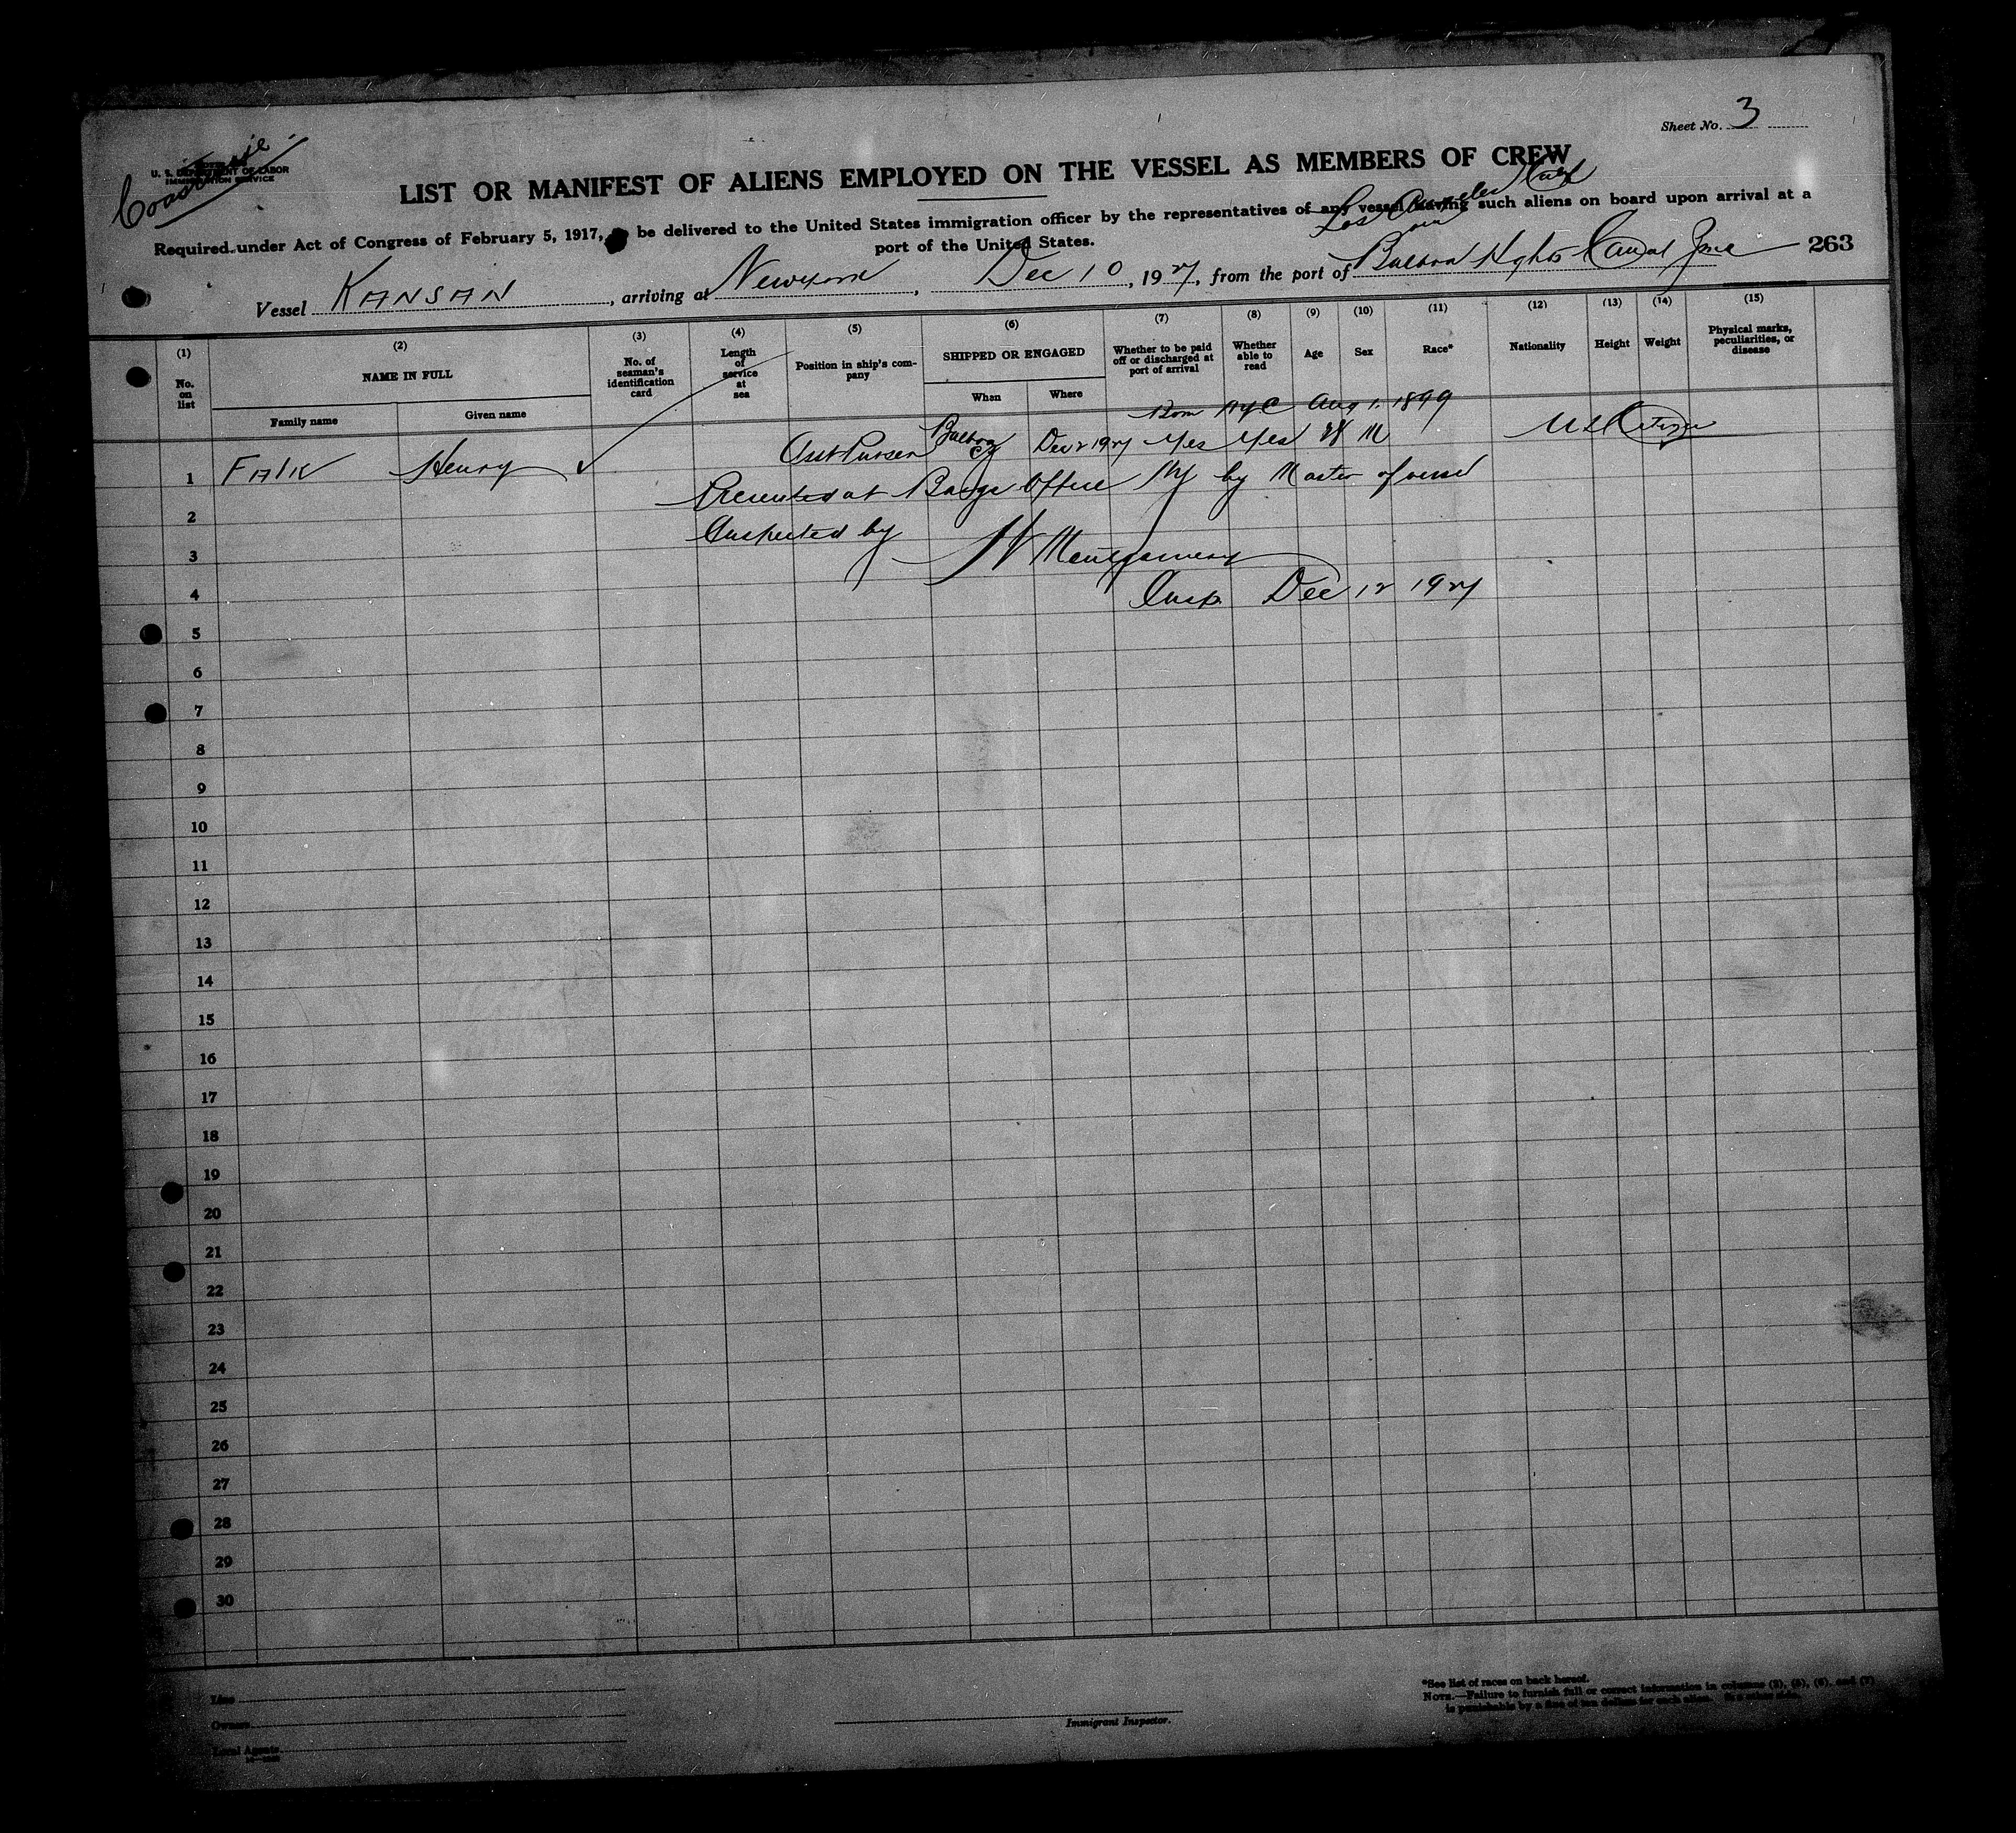 Sheet No. 3
U. S. DEPARTMENT OF LABOR
IMMIGRATION SERVICE
LIST OR MANIFEST OF ALIENS EMPLOYED ON THE VESSEL AS MEMBERS OF CREW
Los Angeles Calif
Required under Act of Congress of February 5, 1917, to be delivered to the United States immigration officer by the representatives of any vessel having such aliens on board upon arrival at a
port of the United States.
263
Vessel KANSAN, arriving at New York, Dec 10, 1927, from the port of Balboa Hghts Canal Zone
(1) (2) (3) (4) (5) (6) (7) (8) (9) (10) (11) (12) (13) (14) (15)
No. on list NAME IN FULL No. of seaman's identification card Length of service at sea Position in ship's company SHIPPED OR ENGAGED Whether to be paid off or discharged at port of arrival Whether able to read Age Sex Race* Nationality Height Weight Physical marks, peculiarities, or disease
Family name Given name When Where
Born NYC Aug 1. 1899
1 FALK Henry Asst Purser Balboa CZ Dec 2 1927 Yes Yes 28 M US Citizen
Presented at Barge Office NY by Master of vessel
2
Inspected by
3
Montgomery
4
Insp. Dec 12 1927
5
6
7
8
9
10
11
12
13
14
15
16
17
18
19
20
21
22
23
24
25
26
27
28
29
30
Line
Owners
Local Agents
Immigrant Inspector.
*See list of races on back hereof.
NOTE.—Failure to furnish full or correct information in columns (2), (5), (6), and (7)
is punishable by a fine of ten dollars for each alien.